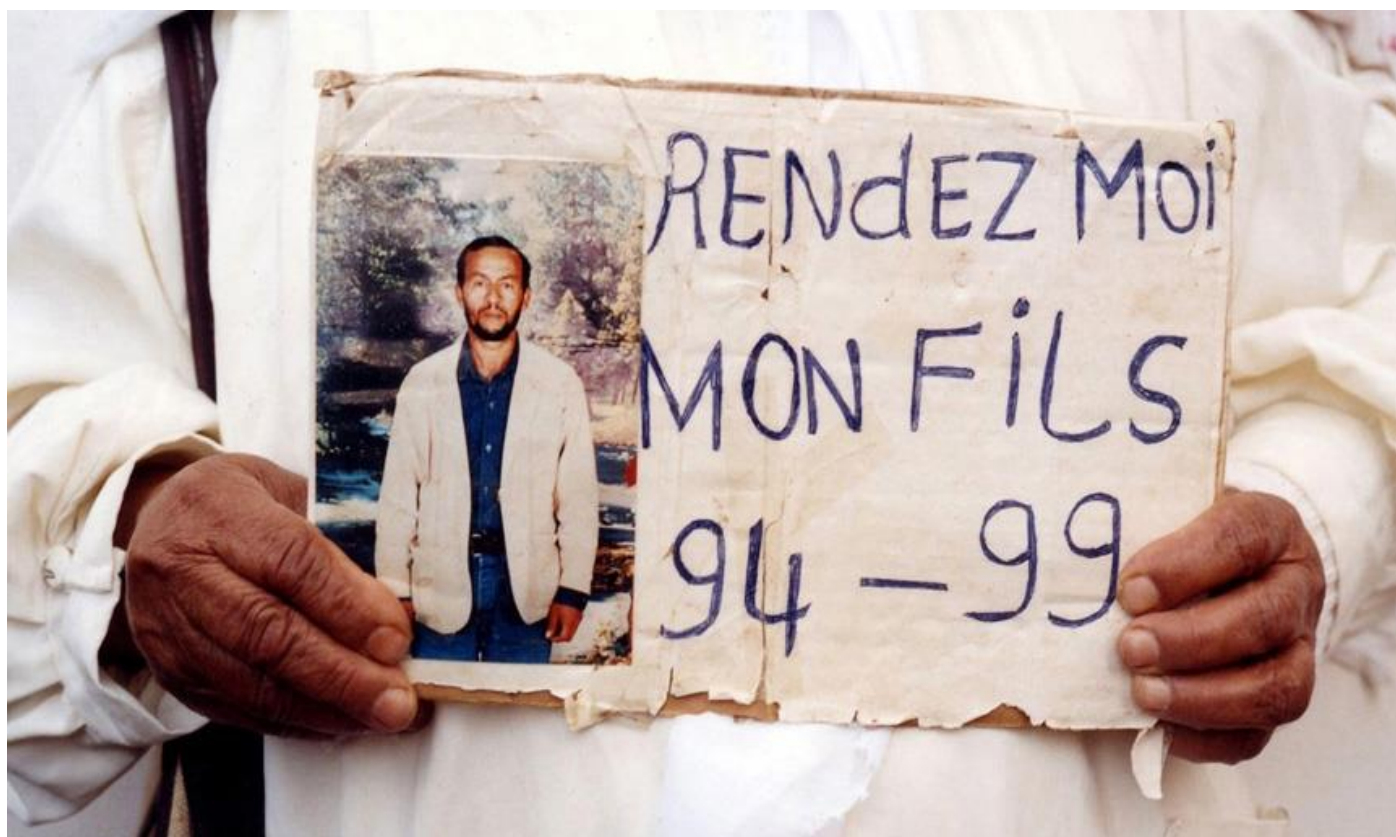 RENdEZ Moi
MON FiLS
94 – 99